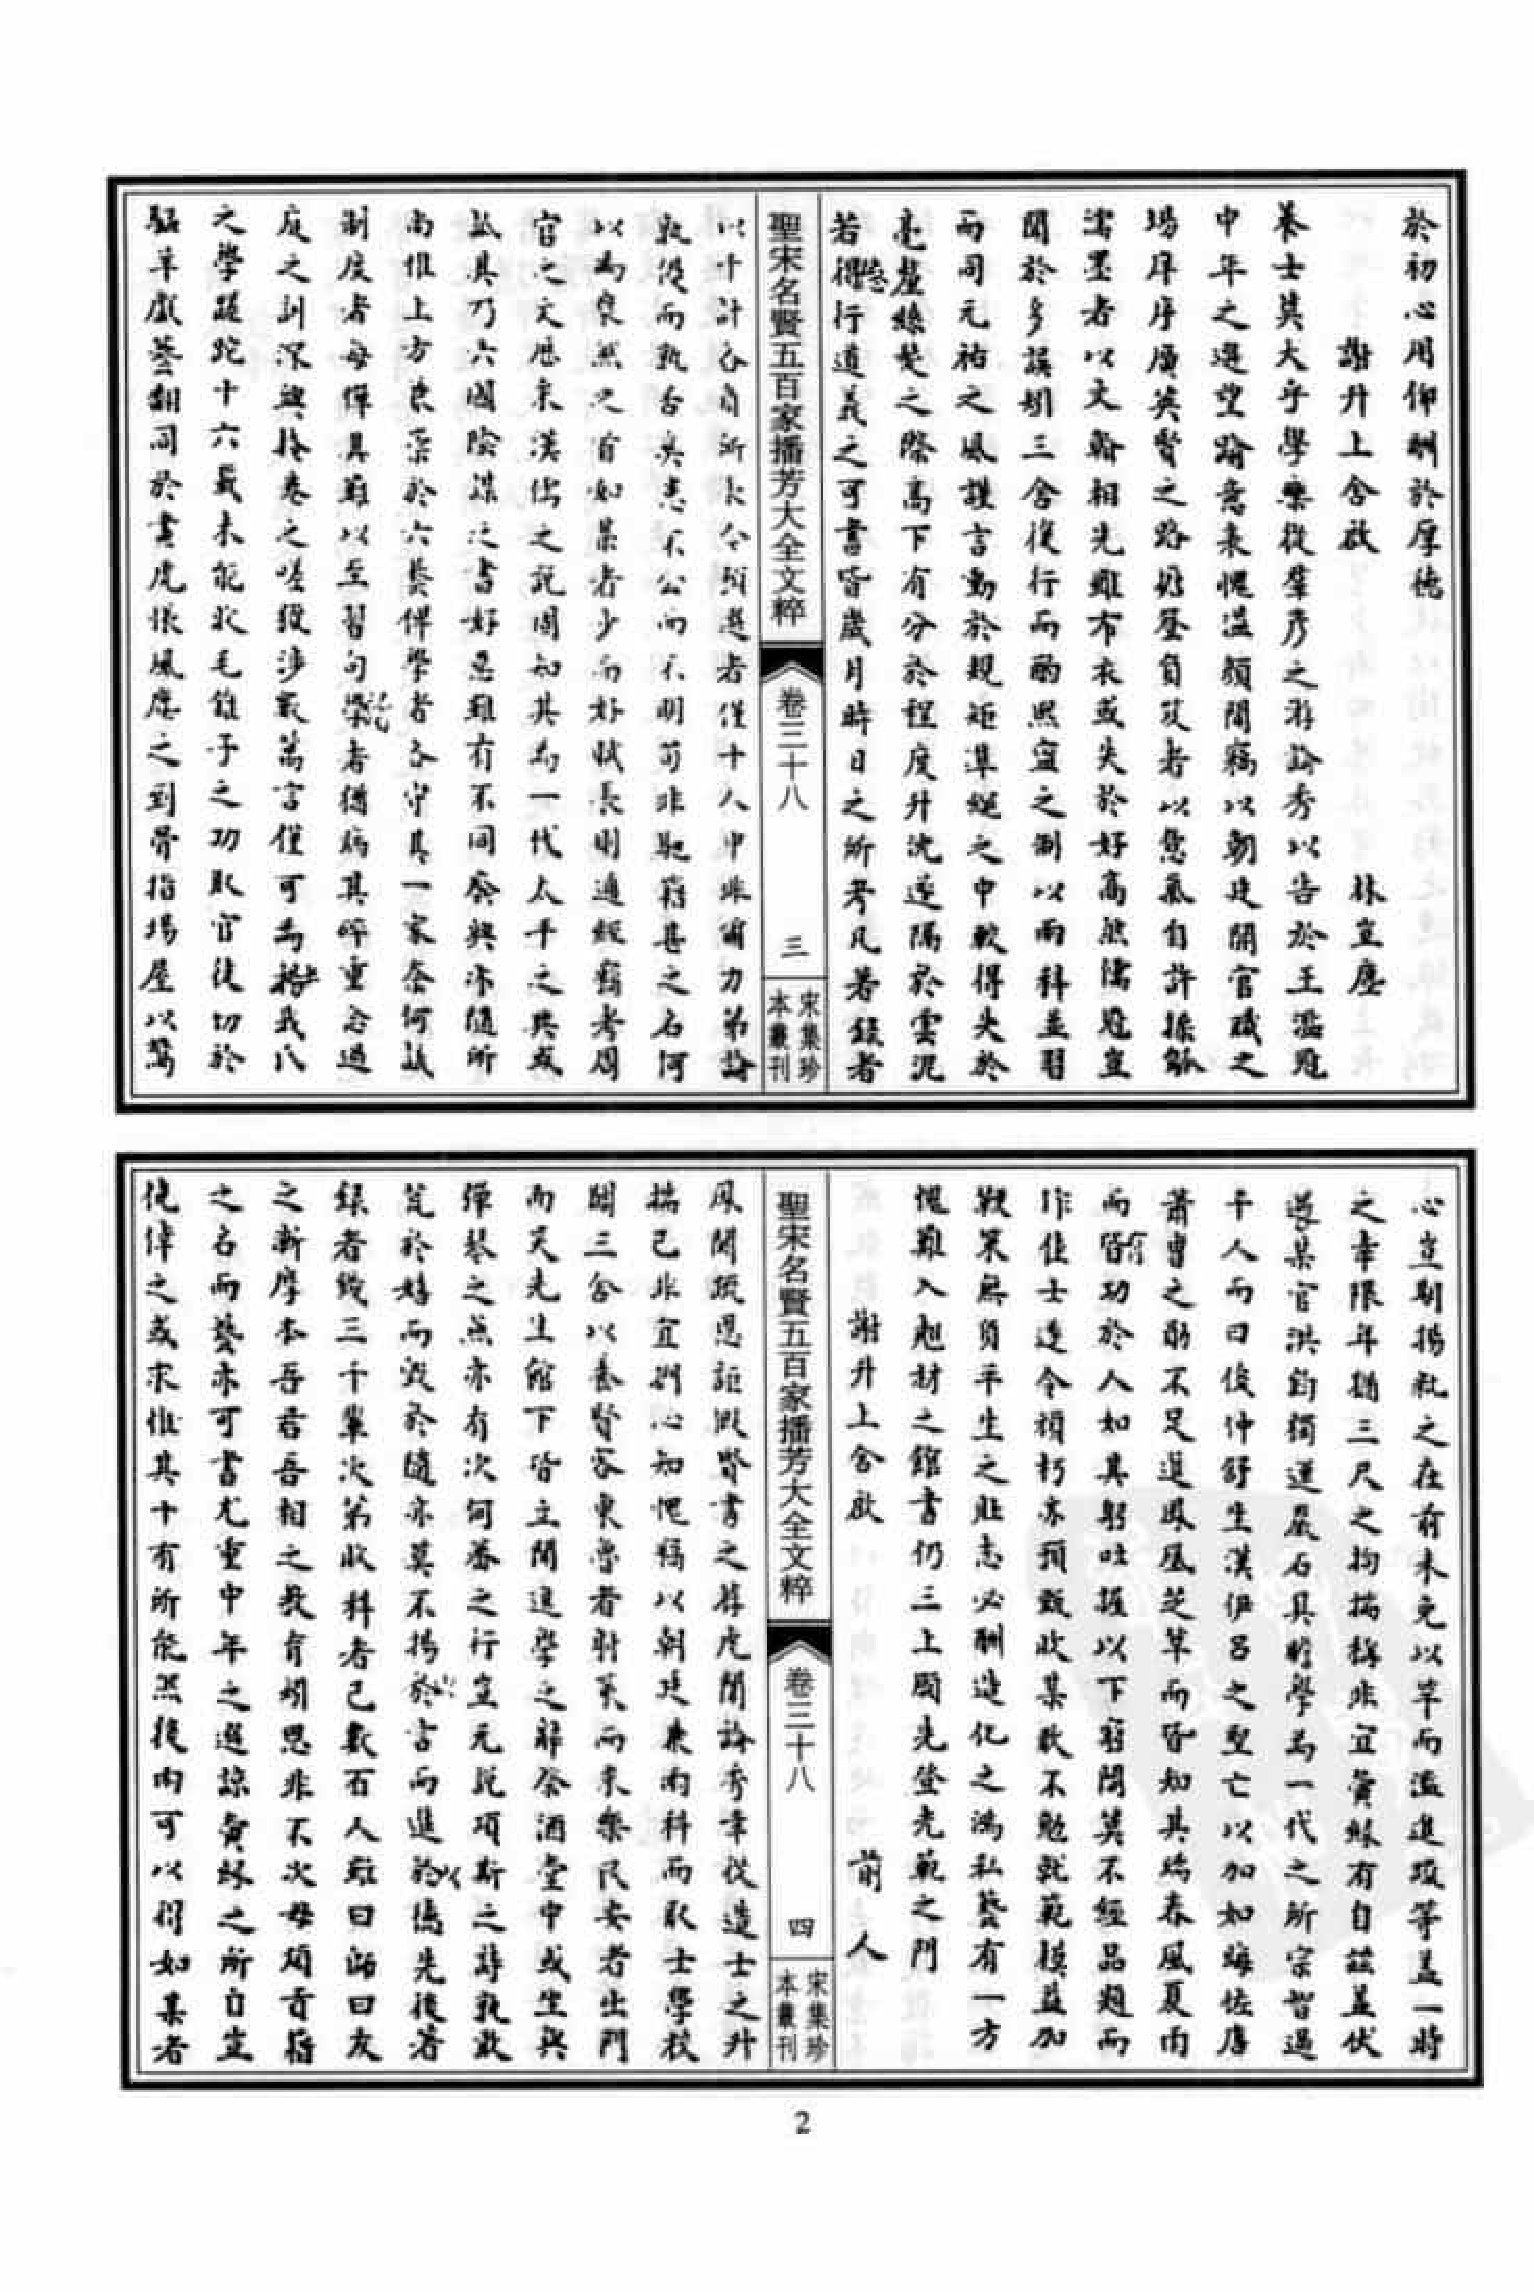 於初心用仰酬於厚德
謝升上舍啟 林宣塵
養士莫大乎學樂從羣彥之游論秀以告於王濫冠
中年之選望踰意表愧溢顏間竊以朝廷開官職之
場庠序廣英賢之路挖登自艾者以怠氣自許操觚
濡墨者以文翰相先雖布衣或失於好高然儒冠豈
聞於多誤矧三舍復行而酌熙寧之制以兩科並習
而同元祐之風謹言動於規矩準繩之中較得失於
毫釐絲忽之際高下有分於程度升沈遂隔於雲泥
若得行道義之可書皆歲月時日之所考凡著錄者
聖宋名賢五百家播芳大全文粹 卷三十八 三 宋集珍本叢刊
以千計各有所長今預選者僅十人中非爾力弟論
敦從而執否臭恚不公而不明苟非馳籍甚之名何
以為泉然之首如某者少而好賦長則通經竊考周
官之文歷采漢儒之說周知其為一代太平之典或
詆其乃六國陰謀之書好惡雖有不同廢興亦隨所
尚惟上方表章於六藝俾學者各守其一家奈何試
制度者毋憚其難以至習句學者猶病其碎重念過
庭之訓深與捲卷之嗟發涉幾萬言僅可為揚我八
之學蹉跎十六載未能收毛錐子之功取官徒切於
驅羊戲藝翻同於畫虎悵風塵之到骨指場屋以驚
心豈期揚秕之在前未免以竽而濫進躐等蓋一時
之幸限年猶三尺之拘揣稱非宜夤緣有自茲蓋伏
遂某官洪鈞獨運嚴石具瞻學為一代之所宗智過
千人而曰俊仲舒生漢伊呂之聖亡以加如晦佐唐
蕭曹之勛不足進鳳凰芝草而皆知其瑞春風夏雨
而皆功於人如其躬吐握以下窮閻莫不經品題而
作佳士遂令禎朽亦預甄收某敢不勉就範模益加
鞭策無負平生之壯志必酬造化之鴻私藝有一方
愧難入翹材之館書仍三上願先登光範之門
謝升上舍啟 前人
聖宋名賢五百家播芳大全文粹 卷三十八 四 宋集珍本叢刊
鳳閣疏恩詎俶賢書之薦虎闈論秀幸從造士之升
揣己非宜捫心知愧竊以朝廷兼兩科而取士學校
闢三舍以養賢客東魯者射策而來樂民安者出門
而笑先生館下皆主聞進學之解祭酒堂中或坐與
彈琴之點亦有次何蕃之行宜元說項斯之詩孰敢
荒於嬉而毀於隨亦莫不揚於言而進於德先後著
錄者幾三千輩次第收科者已數百人雖曰師曰友
之漸摩本吾君吾相之教育矧思非不次毋頊香籍
之名而藝亦可書尤重中年之選諒夤緣之所自豈
僥倖之或求惟其十有所能然後內可以得如某者
2